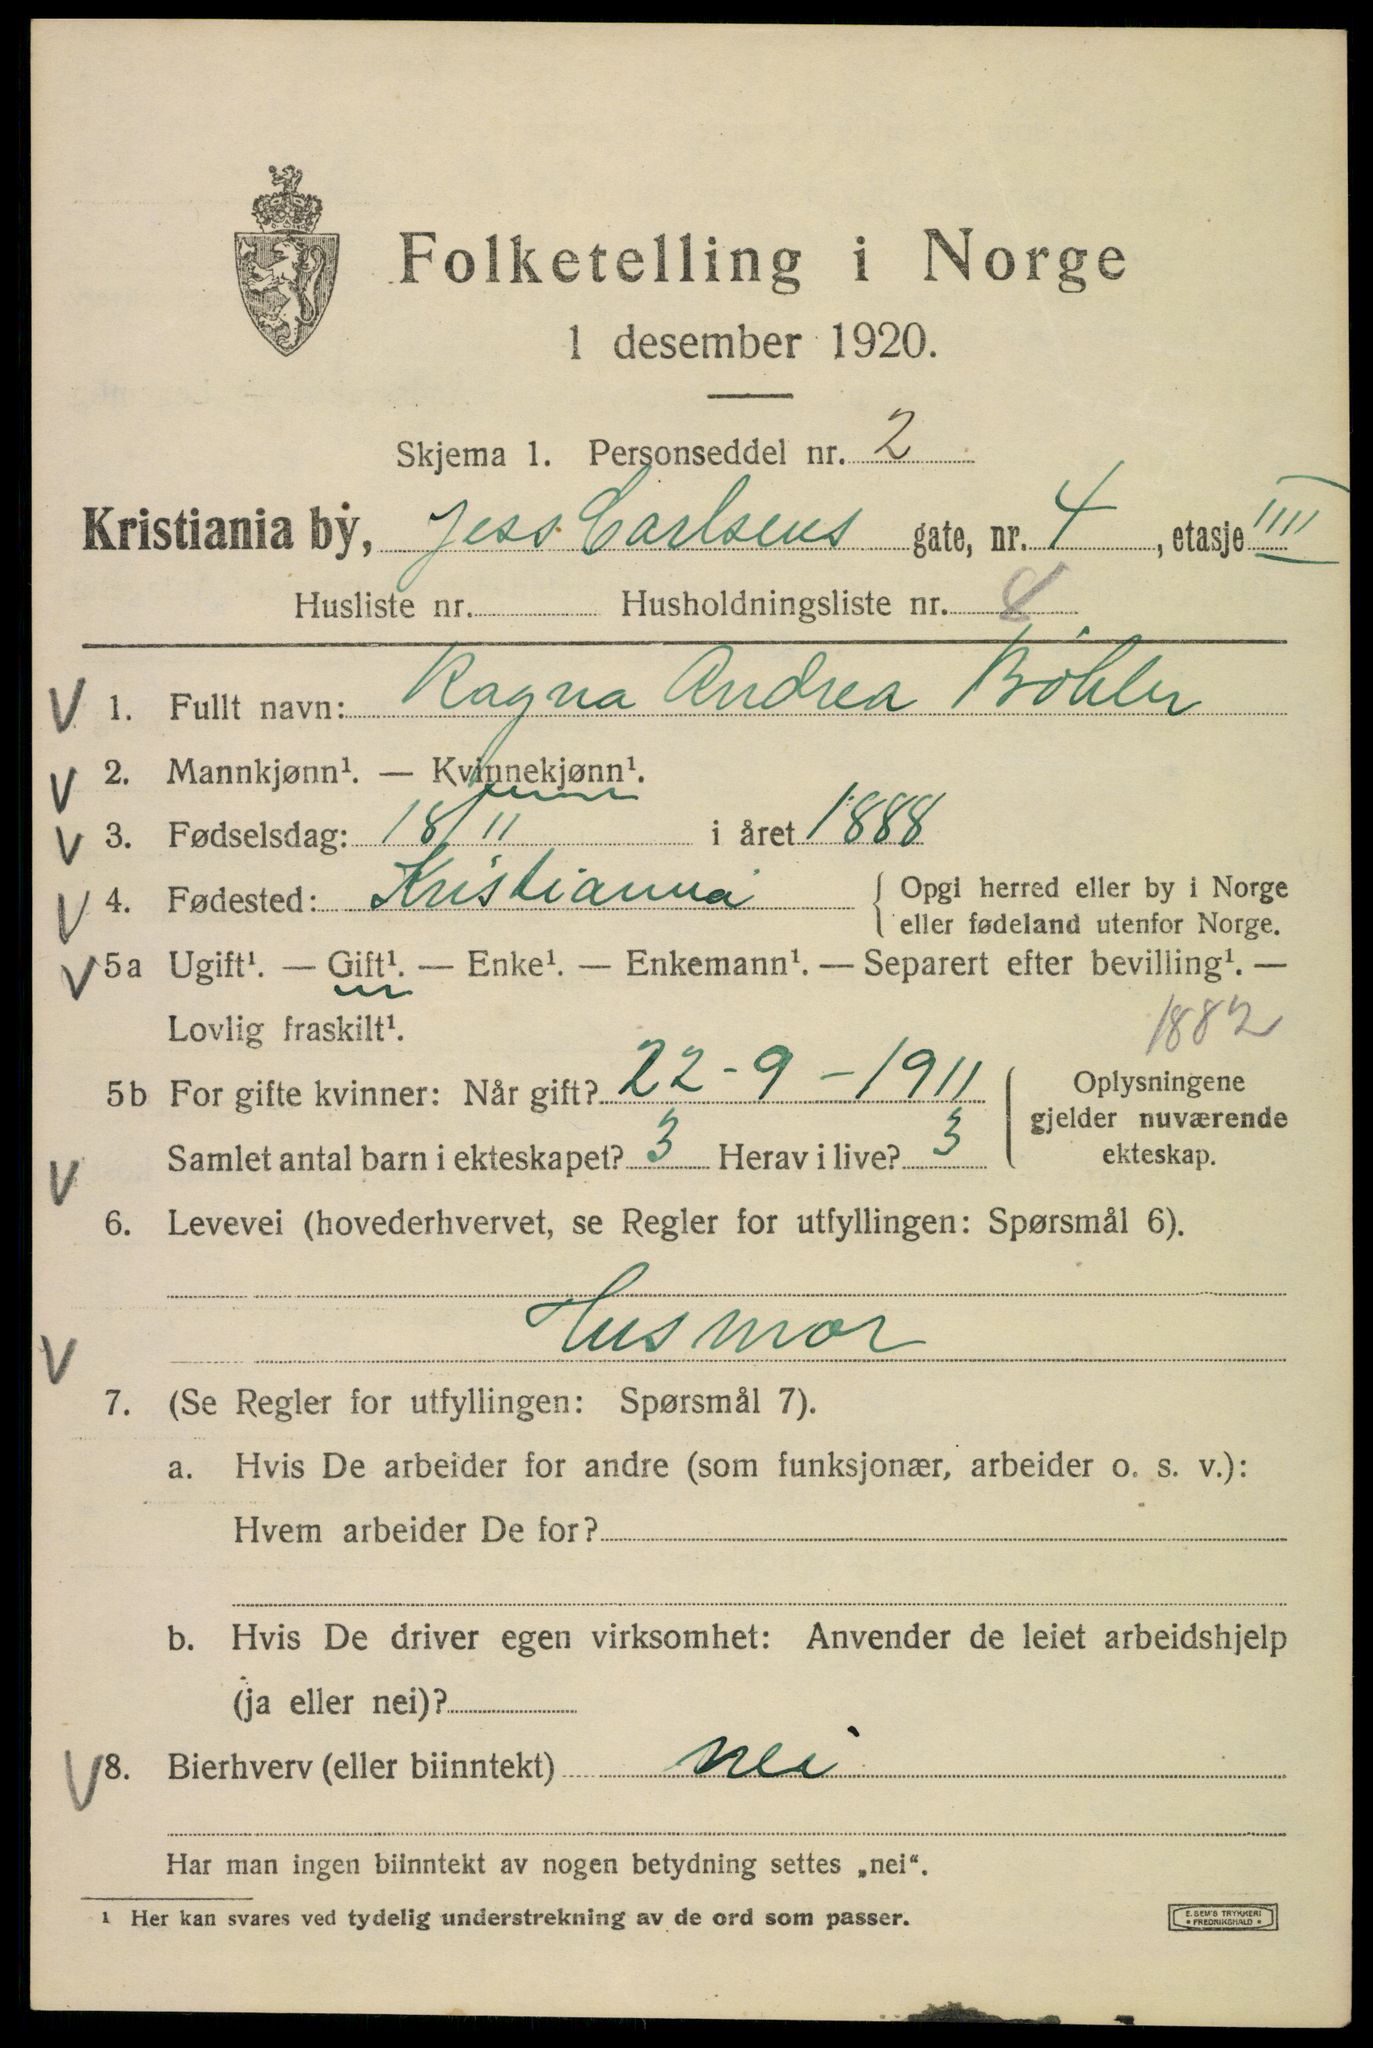 Folketelling i Norge
1 desember 1920.
Skjema 1. Personseddel nr. 2
Kristiania by, Jess Carlsens gate, nr. 4, etasje IIII
Husliste nr. Husholdningsliste nr. 8
V 1. Fullt navn: Ragna Andrea Böhler
V 2. Mannkjønn¹. — Kvinnekjønn¹.
V 3. Fødselsdag: 18/11 i året 1888
V 4. Fødested: Kristiania { Opgi herred eller by i Norge
eller fødeland utenfor Norge.
V 5a Ugift¹. — Gift¹. — Enke¹. — Enkemann¹. — Separert efter bevilling¹. —
Lovlig fraskilt¹. 1882
5b For gifte kvinner: Når gift? 22-9-1911 Oplysningene
gjelder nuværende
Samlet antal barn i ekteskapet? 3 Herav i live? 3 ekteskap.
V
6. Levevei (hovederhvervet, se Regler for utfyllingen: Spørsmål 6).
V Husmor
7. (Se Regler for utfyllingen: Spørsmål 7).
a. Hvis De arbeider for andre (som funksjonær, arbeider o. s. v.):
Hvem arbeider De for?
b. Hvis De driver egen virksomhet: Anvender de leiet arbeidshjelp
(ja eller nei)?
V 8. Bierhverv (eller biinntekt) nei
Har man ingen biinntekt av nogen betydning settes „nei“.
¹ Her kan svares ved tydelig understrekning av de ord som passer.
E. SEM'S TRYKKERI
• FREDRIKSHALD •